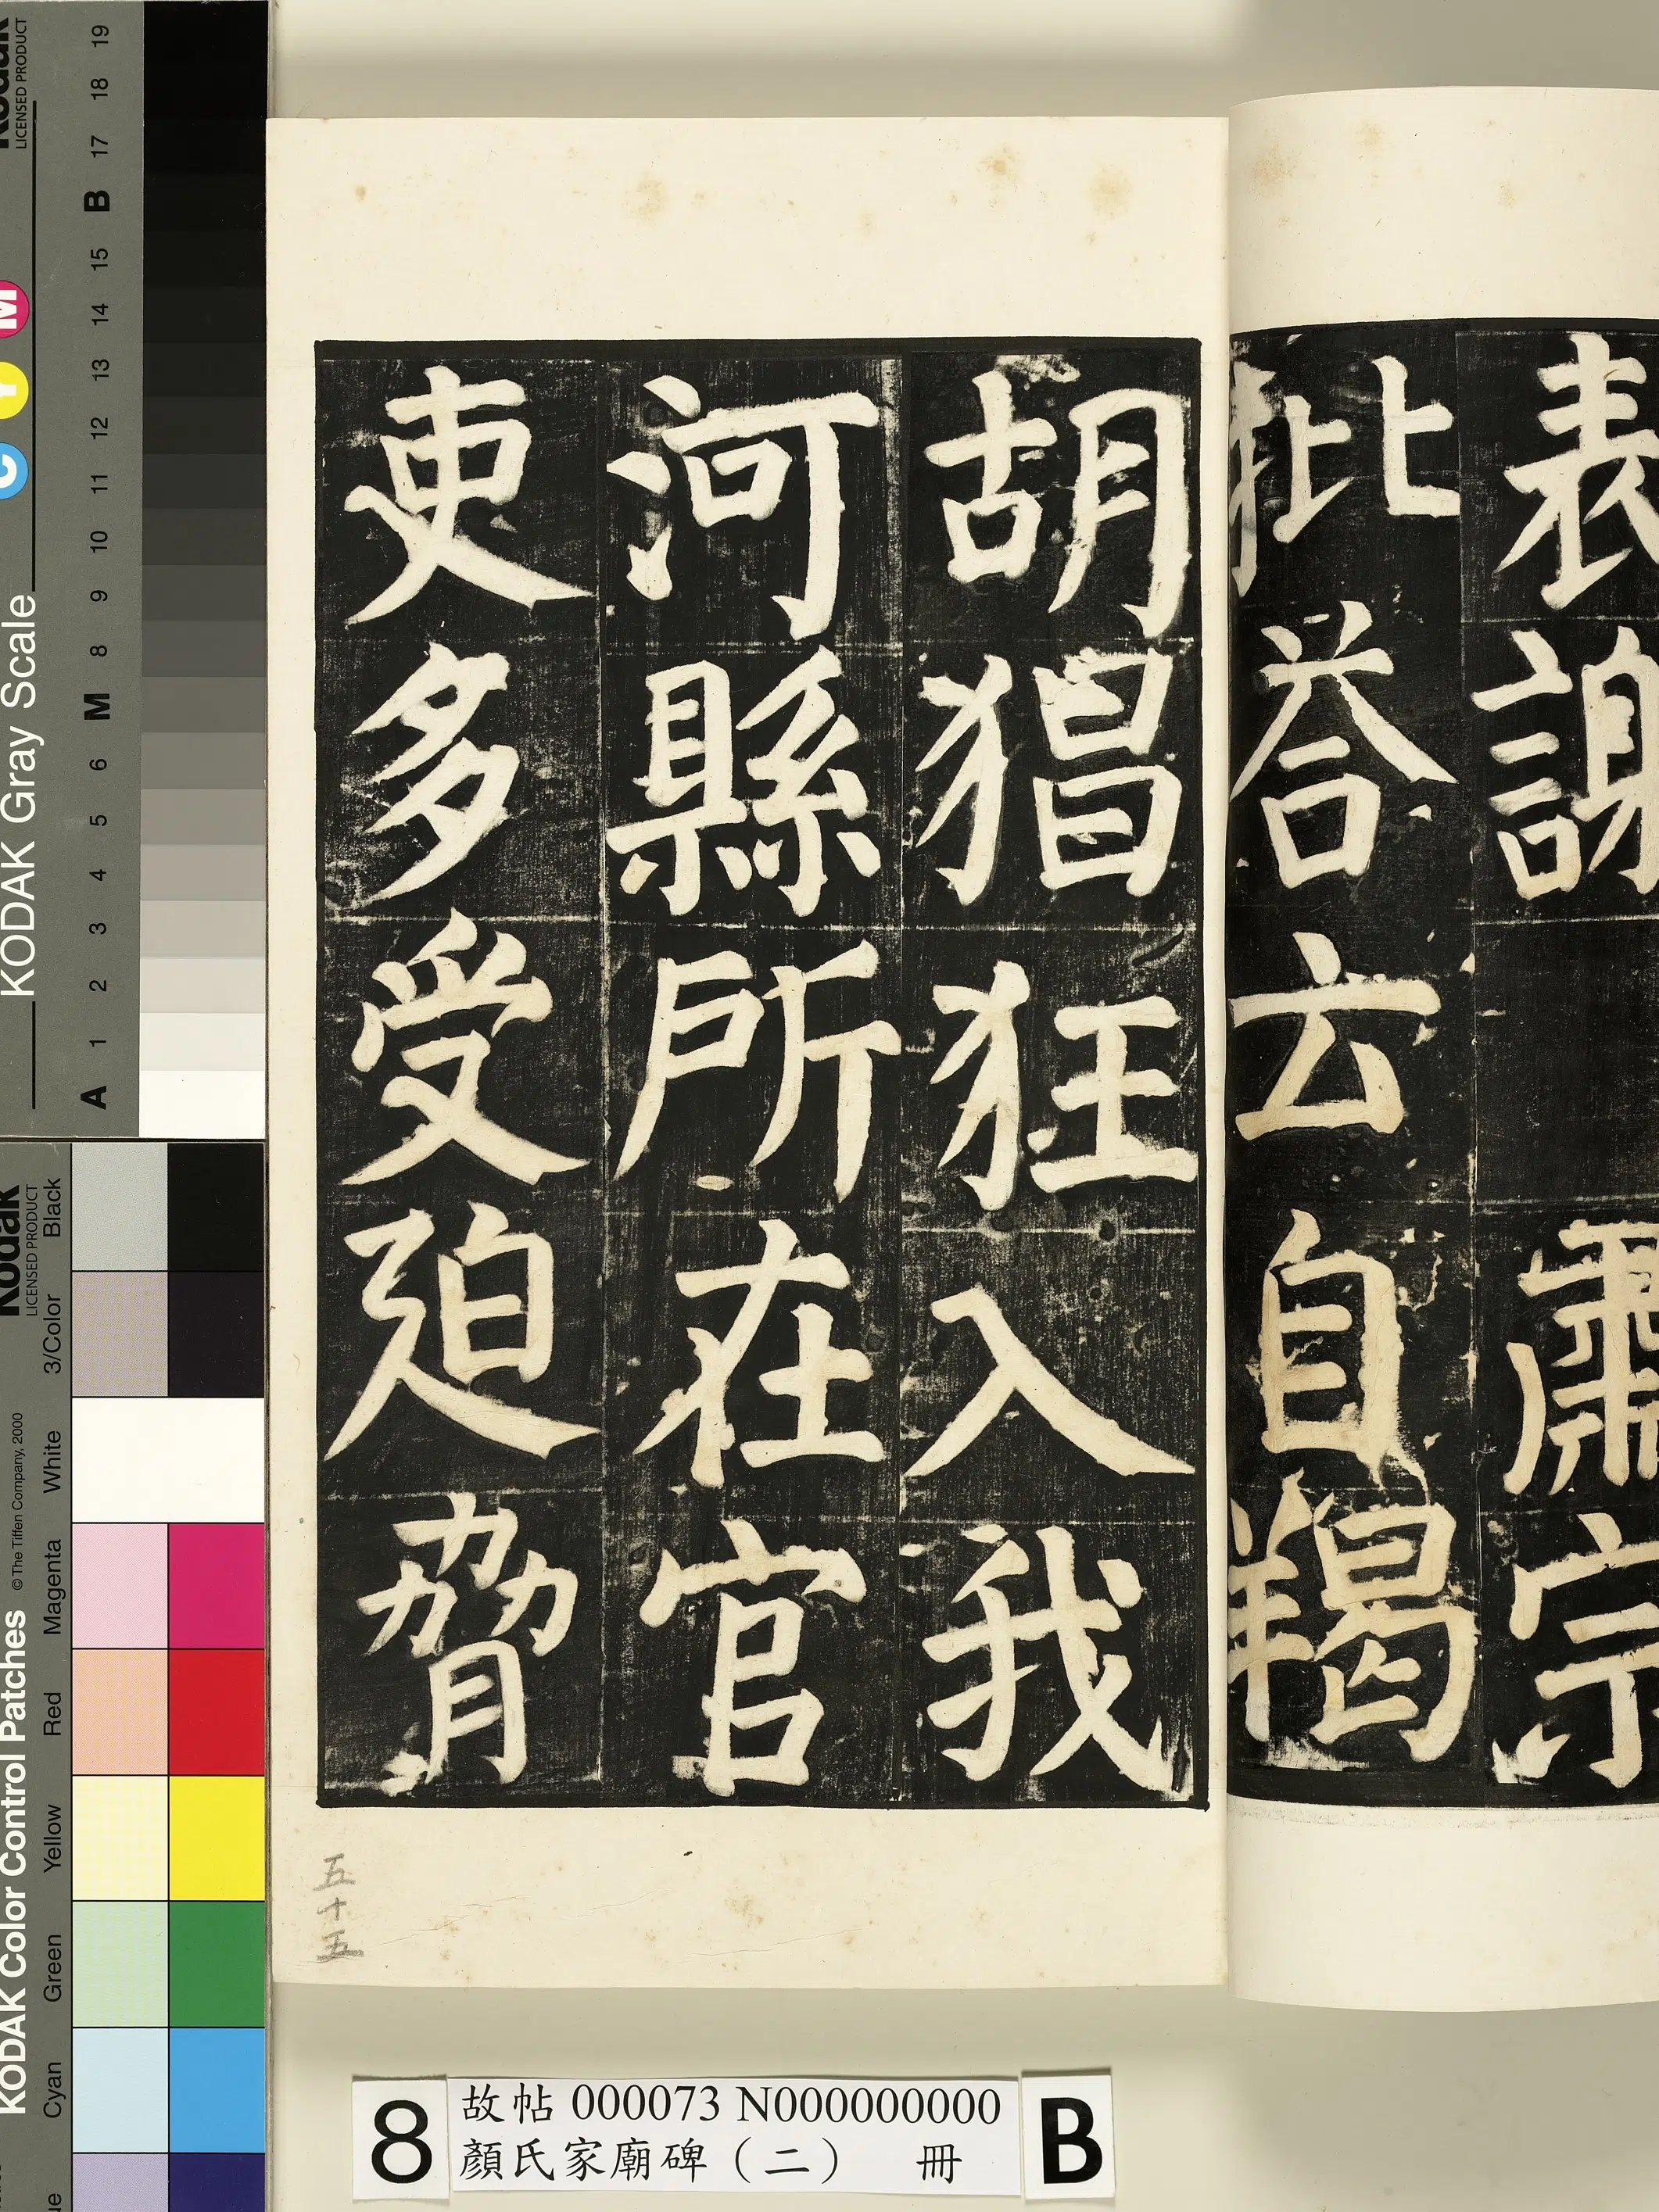 表謝 肅宗
批荅云自羯
胡猖狂入我
河縣所在官
吏多受迫脅
五十五
8
故帖 000073 N000000000
顏氏家廟碑（二） 冊
B
Kodak
LICENSED PRODUCT
KODAK Gray Scale
C Y M
A 1 2 3 4 5 6 M 8 9 10 11 12 13 14 15 B 17 18 19
Kodak
LICENSED PRODUCT
KODAK Color Control Patches
© The Tiffen Company, 2000
Cyan Green Yellow Red Magenta White 3/Color Black